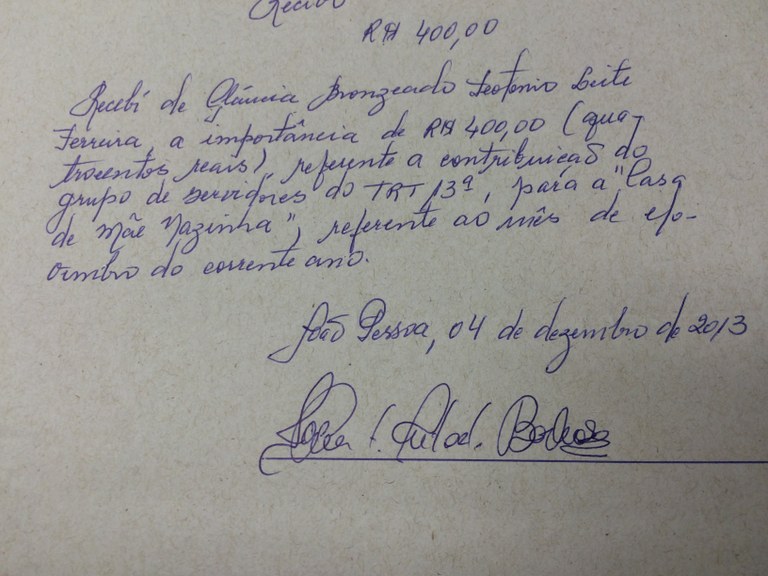 Recibo
R$ 400,00
Recebi de Gláucia Bronzeado Teotonio Leite
Ferreira, a importância de R$ 400,00 (qua-
trocentos reais) referente a contribuição do
grupo de servidores do TRT 13ª, para a "Casa
de Mãe Nazinha", referente ao mês de
vembro do corrente ano.
João Pessoa, 04 de dezembro de 2013